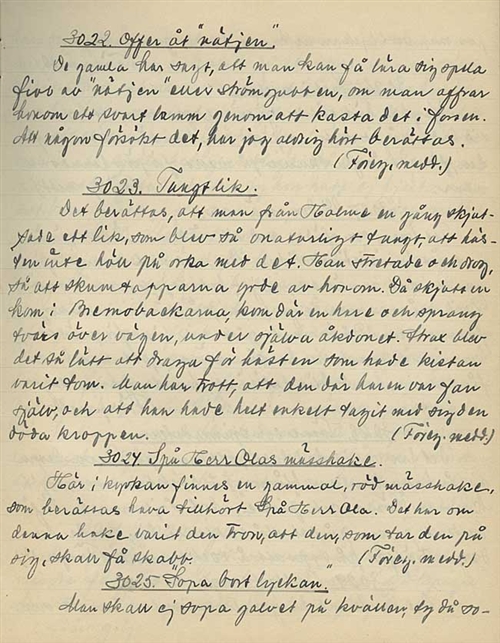 3022. Offer åt "nätjen".
De gamla har sagt, att man kan få lära sig spela
fiol av "nätjen" eller strömgubben, om man offrar
honom ett svart lamm genom att kasta det i forsen.
Att någon försökt det, har jag aldrig hört berättas.
(Föreg. medd.)
3023. Tungt lik.
Det berättas, att man från Holme en gång skjut-
sade ett lik, som blev så onaturligt tungt, att häs-
ten inte höll på orka med det. Han stretade och drog,
så att skumtapparna yrde av honom. Då skjutsen
kom i Bremobackarna, kom där en hare och sprang
tvärs över vägen, under själva åkdonet. Strax blev
det så lätt att draga för hästen som hade kistan
varit tom. Man har trott, att den där haren var fan
själv, och att han hade helt enkelt tagit med sig den
döda kroppen. (Föreg. medd.)
3024. Spå Herr Olas mässhake.
Här i kyrkan finnes en gammal, röd mässhake,
som berättas hava tillhört Spå Herr Ola. Det har om
denna hake varit den tron, att den, som tar den på
sig, skall få skabb. (Föreg. medd.)
3025. "Sopa bort lyckan."
Man skall ej sopa golvet på kvällen, ty då so-